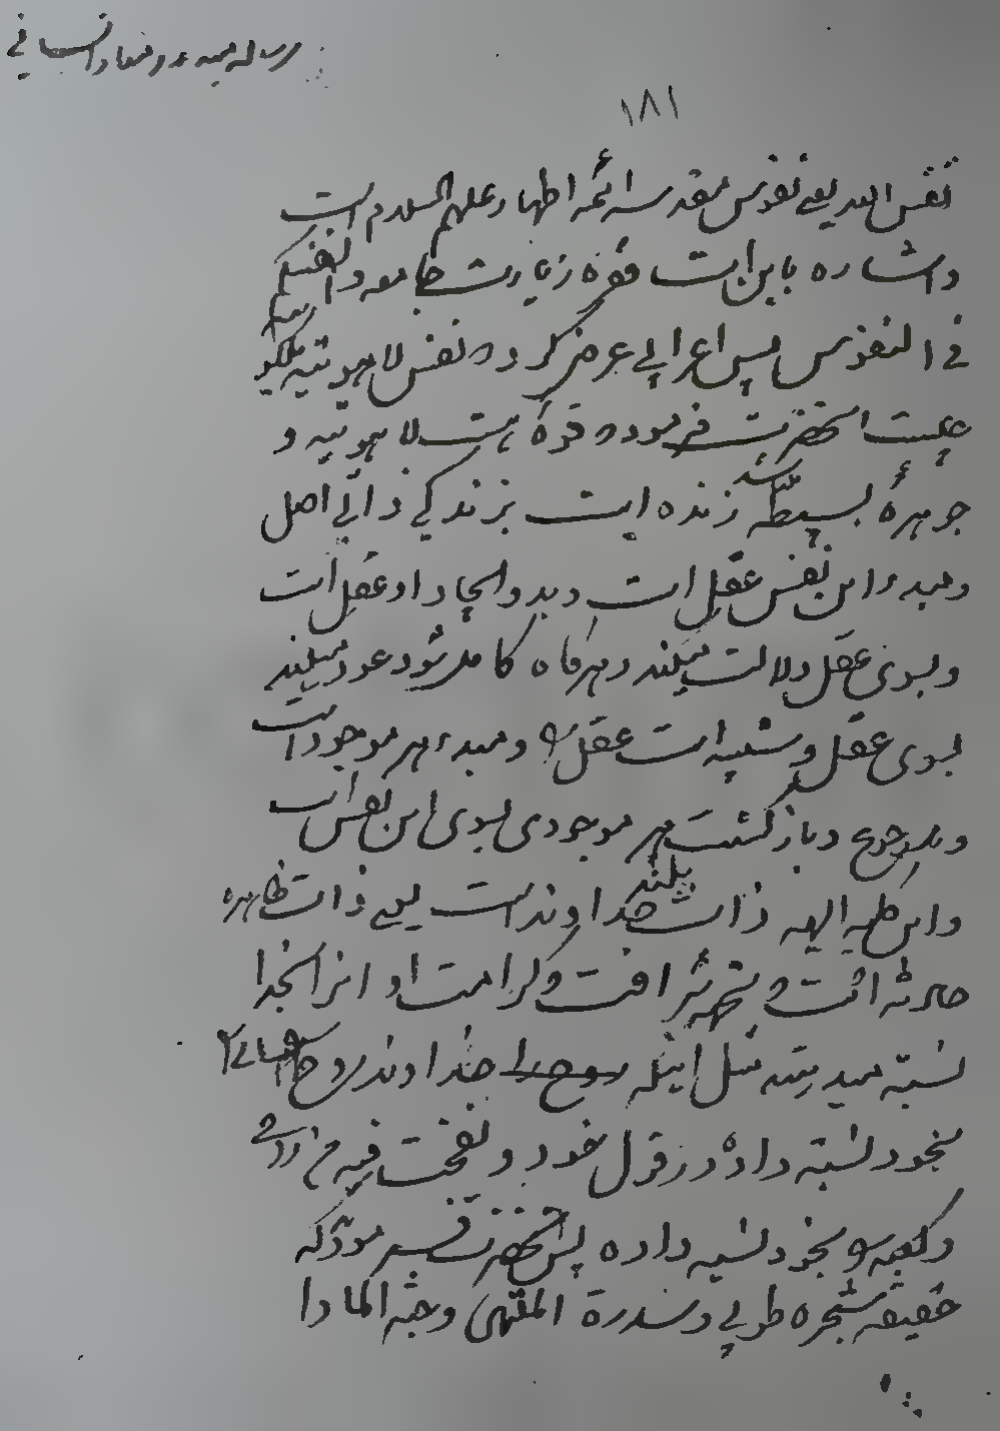 رساله مبدء و معاد انسانی
۱۸۱
نفس الله یعنی نفوس مقدسه ائمه اطهار علیهم السلام است
و اشاره باین است فقره زیارت جامعه و انفسکم
فی النفوس پس اعرابی عرض کرد نفس لاهوتیه ملکوتیه
چیست آنحضرت فرمود قوهٔ است لاهوتیه و
جوهرهٔ بسیطه زنده است بزندگی ذاتی اصل
و مبدء این نفس عقل است و بدو ایجاد او عقل است
و بسوی عقل دلالت میکند و هرگاه کامل شود عود میکند
بسوی عقل و شبیه است عقل را و مبدء هر موجود است
و رجوع و بازگشت هر موجودی بسوی این نفس است
و این کلمه الهیه ذات بلند خداوند است یعنی ذات ظاهره
حادثه است و بجهة شرافت و کرامت او از آنخدا
نسبته میدهند مثل اینکه روح را خداوند روح انسانی را
بخود نسبته داده در قول خود و نفخت فیه من روحی
و کعبه را بخود نسبه داده پس آنحضرت فرمود که
حقیقه شجره طوبی و سدرة المنتهی و جنة الماوا